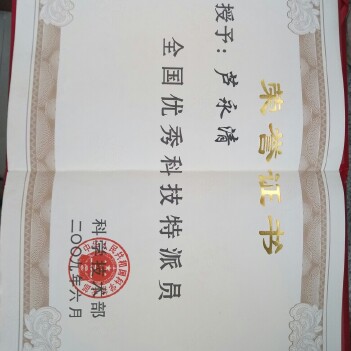 荣誉证书
授予：芦永清
全国优秀科技特派员
科学技术部
二〇〇九年六月